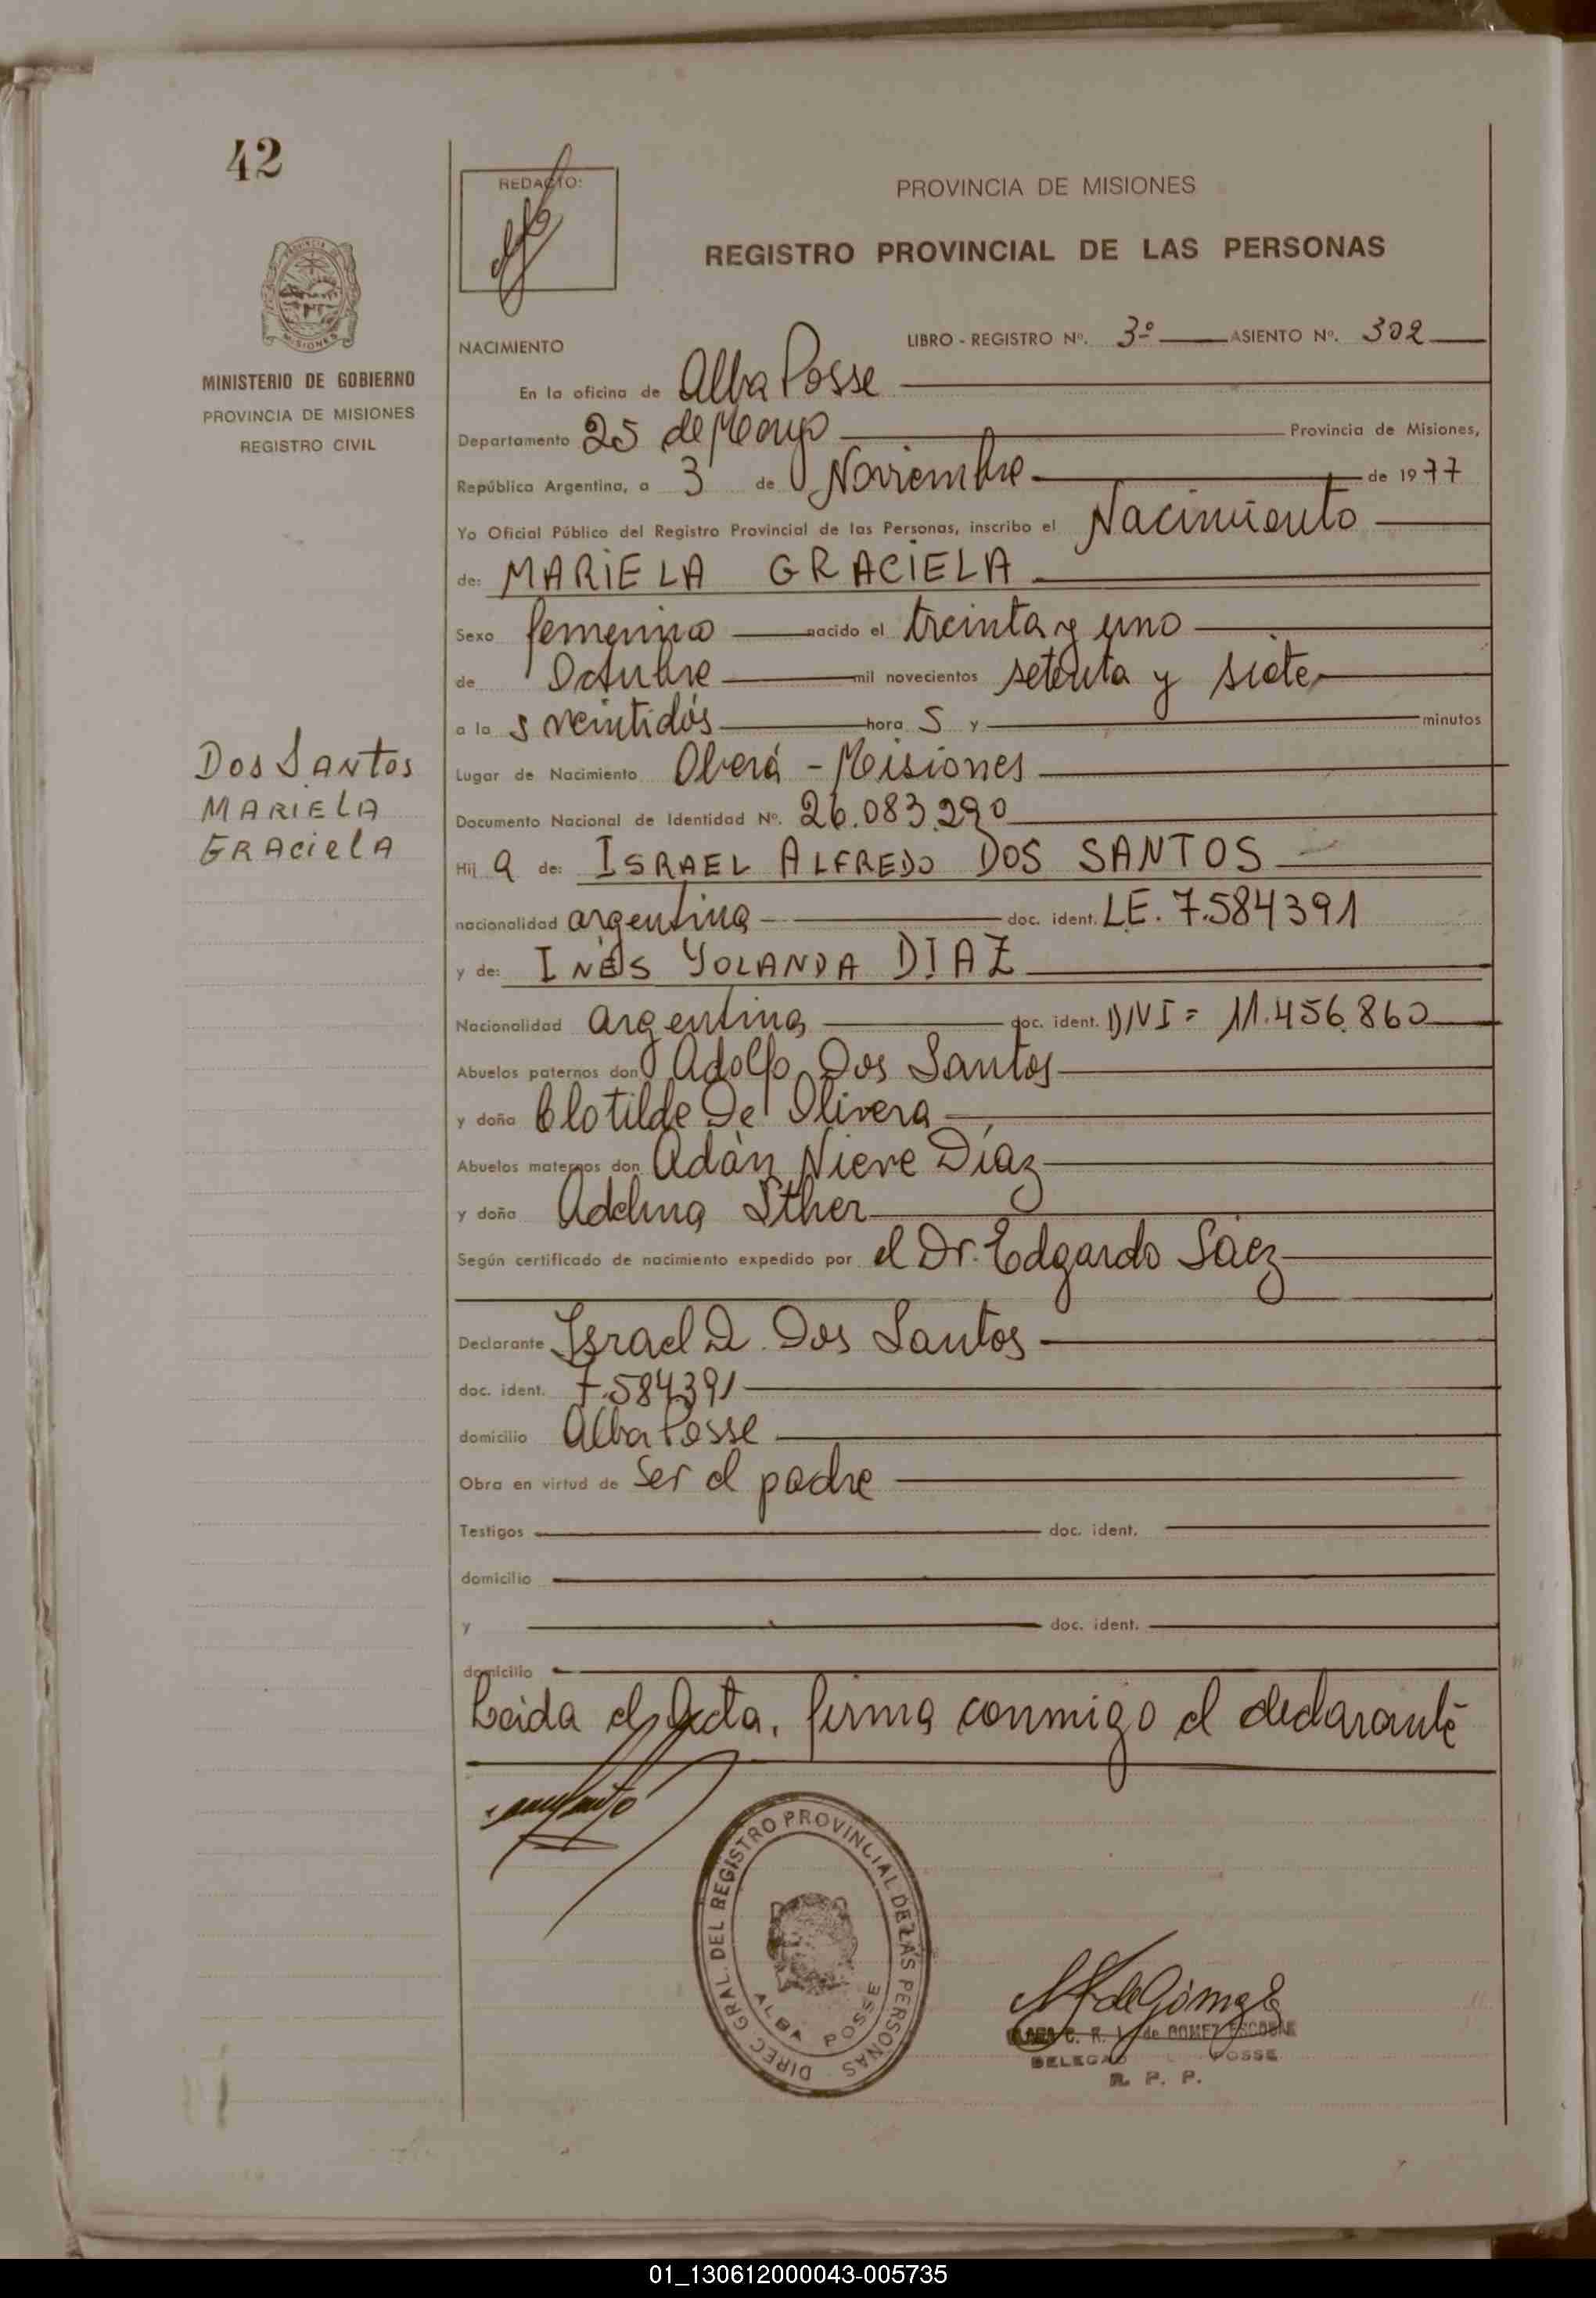 42
REDACTO:
PROVINCIA DE MISIONES
REGISTRO PROVINCIAL DE LAS PERSONAS
PROVINCIA DE MISIONES
MINISTERIO DE GOBIERNO
PROVINCIA DE MISIONES
REGISTRO CIVIL
LIBRO - REGISTRO Nº. 3º ASIENTO Nº. 302
NACIMIENTO
En la oficina de Alba Posse
Departamento 25 de Mayo Provincia de Misiones,
República Argentina, a 3 de Noviembre de 1977
Yo Oficial Público del Registro Provincial de las Personas, inscribo el Nacimiento
de: MARIELA GRACIELA
Sexo femenino nacido el treinta y uno
de Octubre mil novecientos setenta y siete
a la s veintidós hora s y minutos
Dos Santos
MARIELA
GRACIELA
Lugar de Nacimiento Oberá - Misiones
Documento Nacional de Identidad Nº. 26.083.290
Hij a de: ISRAEL ALFREDO DOS SANTOS
nacionalidad argentina doc. ident. LE. 7.584391
y de: INÉS YOLANDA DIAZ
Nacionalidad argentina doc. ident. DNI = 11.456.860
Abuelos paternos don Adolfo Dos Santos
y doña Clotilde De Olivera
Abuelos maternos don Adàn Nieve Díaz
y doña Adelina Sther
Según certificado de nacimiento expedido por el Dr. Edgardo Saez
Declarante Israel A. Dos Santos
doc. ident. 7.584391
domicilio Alba Posse
Obra en virtud de Ser el padre
Testigos doc. ident.
domicilio
y doc. ident.
domicilio
Leida el Acta, firma conmigo el declarante
DIREC. GRAL. DEL REGISTRO PROVINCIAL DE LAS PERSONAS
ALBA POSSE
M de Gómez
C. R. de GOMEZ ESCOBAR
POSSE
R. P. P.
01_130612000043-005735